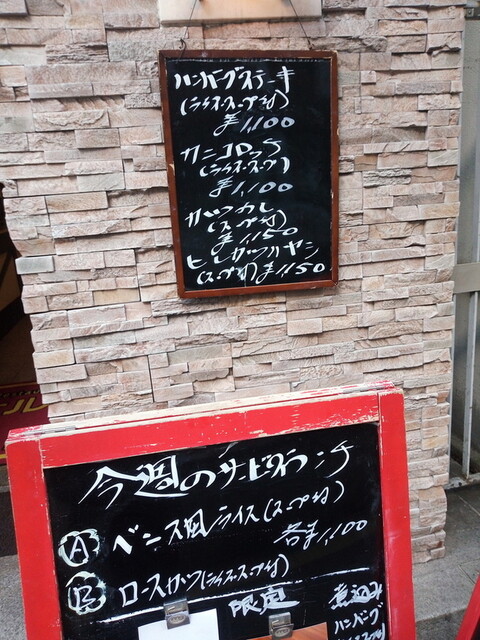 ハンバーグステーキ
(ライス・スープ付)
¥1,100
カニコロッケ
(ライス・スープ)
¥1,100
カツカレー
(スープ付)
¥1,150
ヒレカツハヤシ
(スープ付) ¥1,150
ール
今週のサービスランチ
Ⓐ ベニス風ライス(スープ付)
各¥1,100
Ⓑ ロースカツ(ライス・スープ付)
限定
煮込み
ハンバーグ